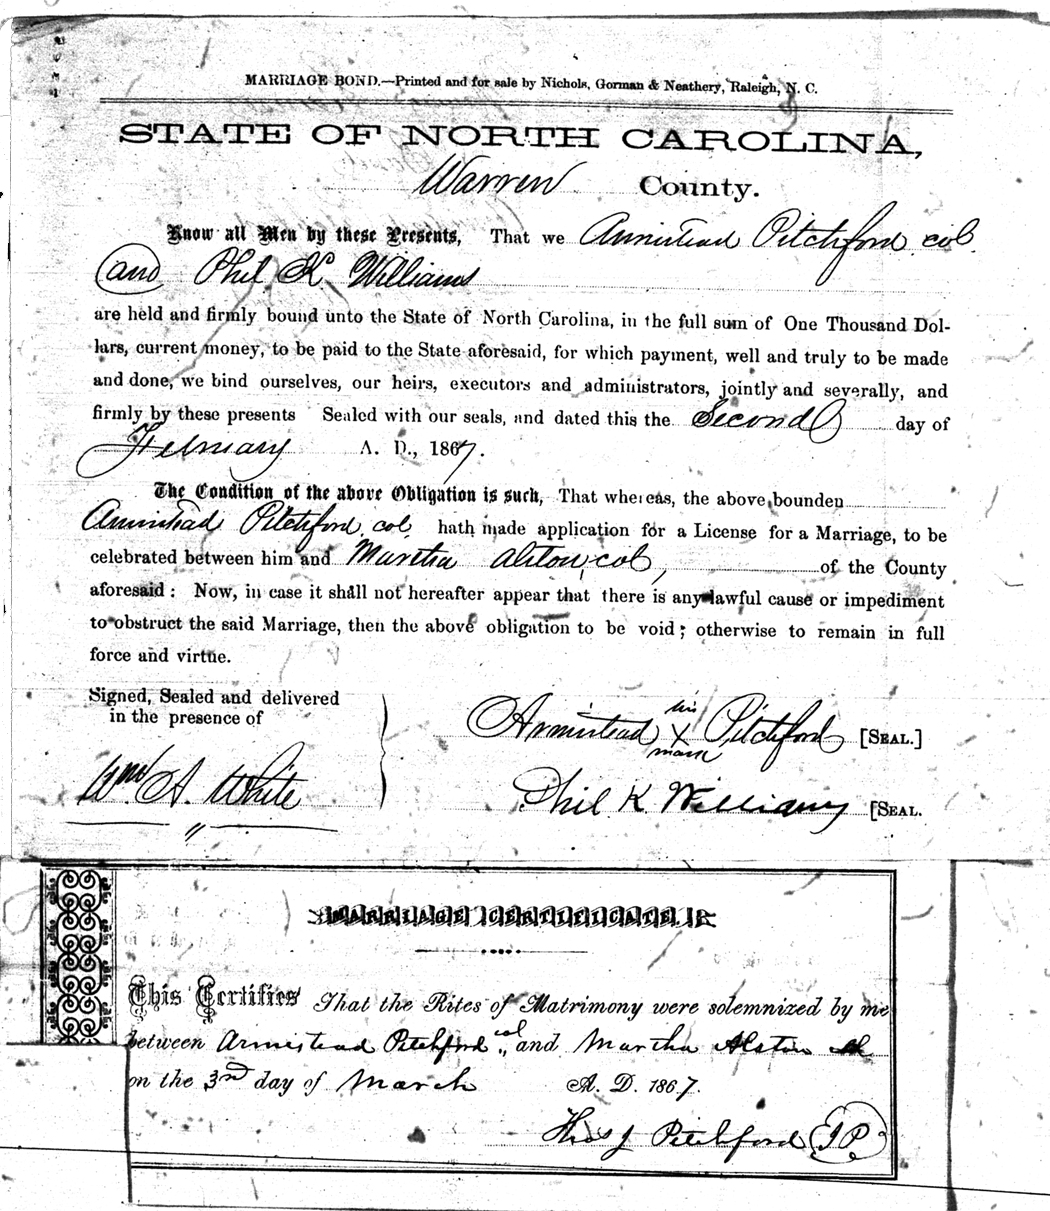 MARRIAGE BOND.—Printed and for sale by Nichols, Gorman & Neathery, Raleigh, N. C.
STATE OF NORTH CAROLINA,
Warren County.
Know all Men by these Presents, That we Armistead Pitchford col
and Phil K Williams
are held and firmly bound unto the State of North Carolina, in the full sum of One Thousand Dol-
lars, current money, to be paid to the State aforesaid, for which payment, well and truly to be made
and done, we bind ourselves, our heirs, executors and administrators, jointly and severally, and
firmly by these presents Sealed with our seals, and dated this the Second day of
February A. D., 1867.
The Condition of the above Obligation is such, That whereas, the above bounden
Armistead Pitchford, col, hath made application for a License for a Marriage, to be
celebrated between him and Martha Alston, col, of the County
aforesaid: Now, in case it shall not hereafter appear that there is any lawful cause or impediment
to obstruct the said Marriage, then the above obligation to be void; otherwise to remain in full
force and virtue.
Signed, Sealed and delivered
in the presence of
Wm A. White
Armistead his X mark Pitchford [SEAL.]
Phil K. Williams [SEAL.
MARRIAGE CERTIFICATE.
This Certifies That the Rites of Matrimony were solemnized by me
between Armistead Pitchford col., and Martha Alston
on the 3rd day of March A. D. 1867.
Thos J Pitchford JP